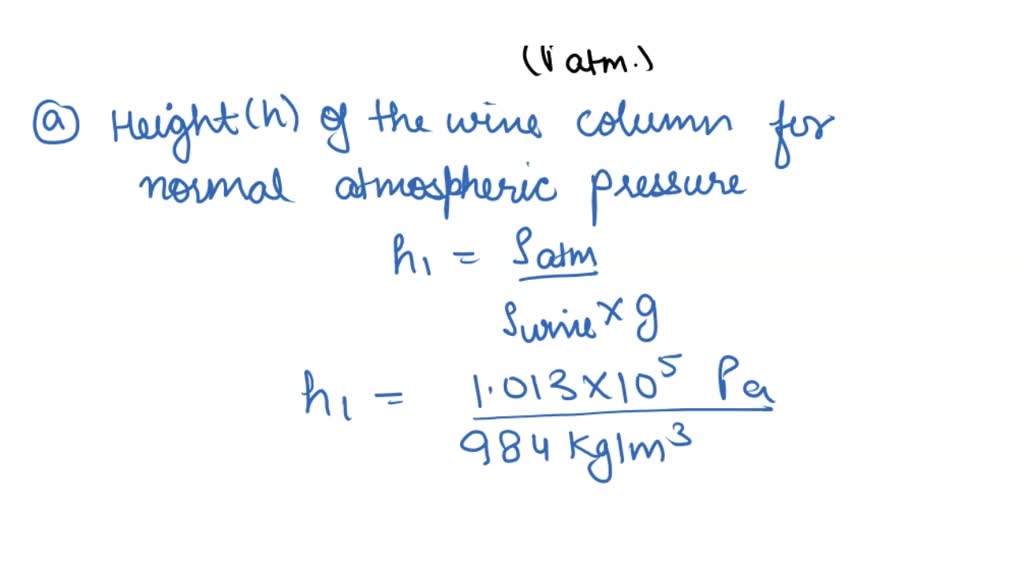 (1 atm.)
(a) Height(h) of the wine column for
normal atmospheric pressure
h₁ = ρatm
ρwine × g
h₁ = 1.013×10⁵ Pa
984 Kg/m³